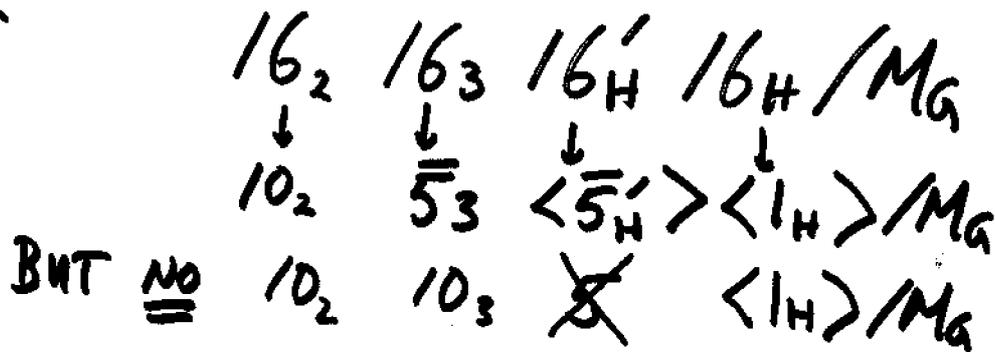 16₂ 16₃ 16'_H 16_H /M_G
↓ ↓ ↓ ↓
10₂ 5̿₃ <5̿'_H> <1_H>/M_G
BUT NO 10₂ 10₃ 5 <1_H>/M_G